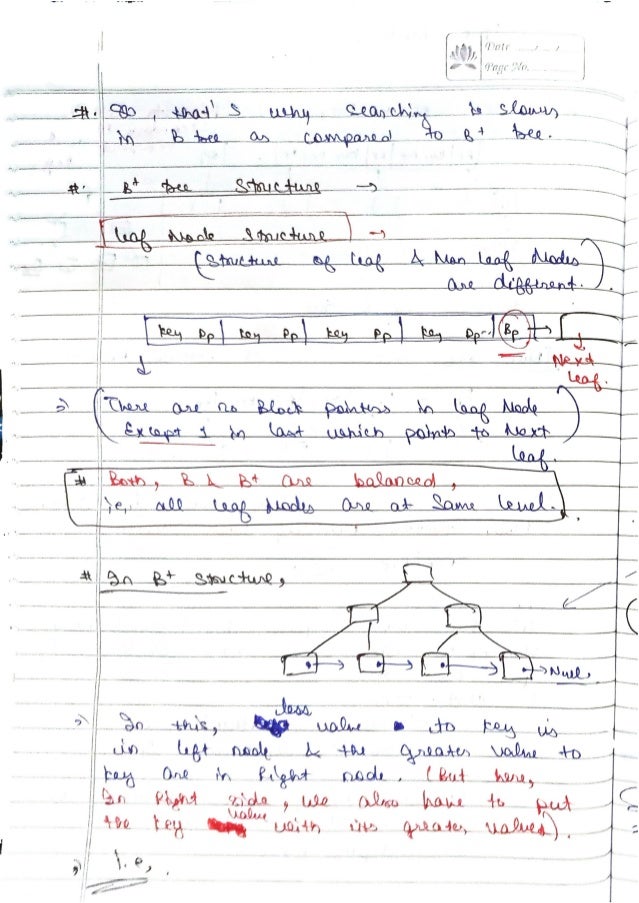 Date
Page No.
#. So, that's why searching is slower
in B tree as compared to B+ tree.
#. B+ tree Structure →
Leaf Node Structure →
(Structure of leaf & Non leaf Nodes
are different.)
Key Dp | Key Dp | Key Dp | Key Dp -- | Bp →
Next
leaf.
⇒ (There are no Block pointers in leaf Node
Except 1 in last which points to Next
leaf.)
# Both, B & B+ are balanced,
i.e, all leaf Nodes are at Same level.
# In B+ Structure,
→ Null.
⇒ In this, less value to key is
in left node & the greater value to
key are in Right node. (But here,
In Right side, we also have to put
the key value with its greater values).
⇒ I.e,